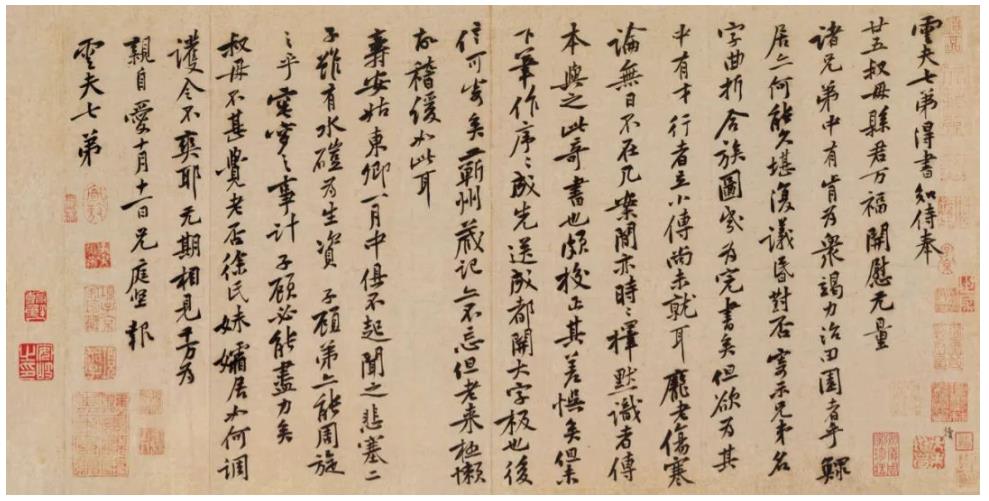 雲夫七弟得書知侍奉
廿五叔母縣君万福開慰无量
諸兄弟中有肯为衆竭力治田園者乎鰥
居亦何能久堪復議昏對否寄示兄弟名
字曲折合族圖幾为完書矣但欲为其
中有才行者立小傳尚未就耳龐老傷寒
論無日不在几案間亦時〻擇默識者傳
本與之此奇書也頗校正其差悞矣但未
下筆作序〻成先送成都開大字板也後
信可寄矣蘄州藏記亦不忘但老来極懶
故稽緩如此耳
壽安姑東卿一月中俱不起聞之悲塞二
子雖有水磑为生資 子顧弟亦能周旋
之乎窀穸之事計 子顧必能盡力矣
叔母不甚覺老否徐氏妹孀居如何調
護令不爽耶无期相見千万为
親自愛十月十一日兄庭堅 報
雲夫七弟